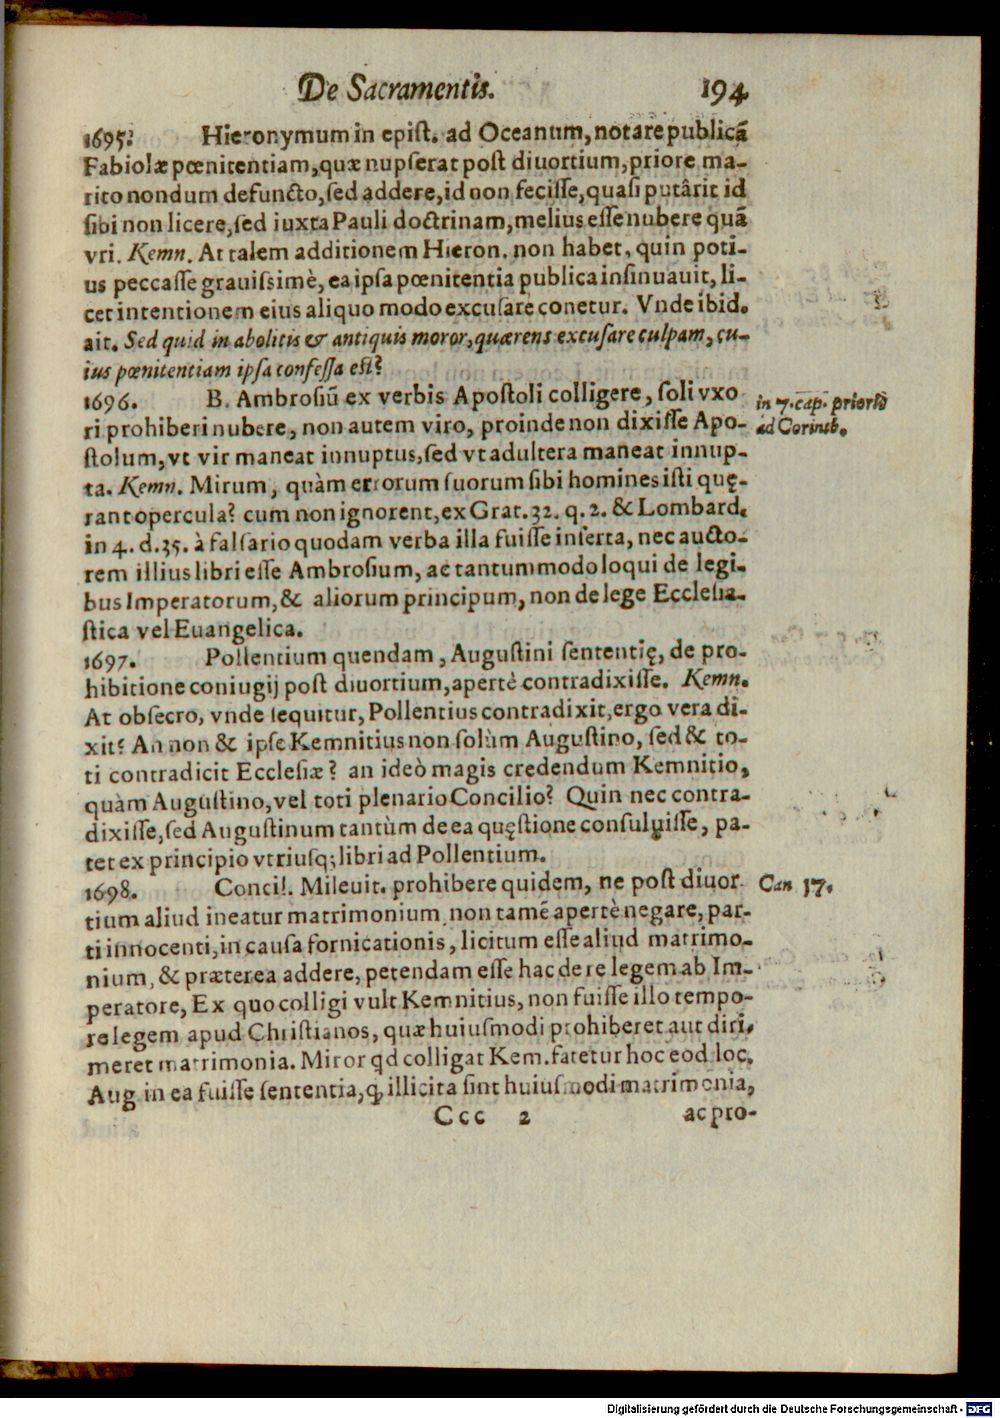 De Sacramentis. 194
1695. Hieronymum in epist. ad Oceanum, notare publicā
Fabiolæ pœnitentiam, quæ nupserat post diuortium, priore ma-
rito nondum defuncto, sed addere, id non fecisse, quasi putârit id
sibi non licere, sed iuxta Pauli doctrinam, melius esse nubere quā
vri. Kemn. At talem additionem Hieron. non habet, quin poti-
us peccasse grauissimè, ea ipsa pœnitentia publica insinuauit, li-
cet intentionem eius aliquo modo excusare conetur. Vnde ibid.
ait. Sed quid in abolitis & antiquis moror, quærens excusare culpam, cu-
ius pœnitentiam ipsa confessa est?
1696. B. Ambrosiū ex verbis Apostoli colligere, soli vxo
ri prohiberi nubere, non autem viro, proinde non dixisse Apo-
stolum, vt vir maneat innuptus, sed vt adultera maneat innup-
ta. Kemn. Mirum, quàm errorum suorum sibi homines isti quę-
rant opercula? cum non ignorent, ex Grat. 32. q. 2. & Lombard.
in 4. d. 35. à falsario quodam verba illa fuisse inserta, nec aucto-
rem illius libri esse Ambrosium, ac tantummodo loqui de legi-
bus Imperatorum, & aliorum principum, non de lege Ecclesia-
stica vel Euangelica.
in 7. cap. prioris
ad Corinth.
1697. Pollentium quendam, Augustini sententię, de pro-
hibitione coniugij post diuortium, apertè contradixisse. Kemn.
At obsecro, vnde sequitur, Pollentius contradixit, ergo vera di-
xit? An non & ipse Kemnitius non solùm Augustino, sed & to-
ti contradicit Ecclesiæ? an ideò magis credendum Kemnitio,
quàm Augustino, vel toti plenario Concilio? Quin nec contra-
dixisse, sed Augustinum tantùm de ea quęstione consuluisse, pa-
tet ex principio vtriusq; libri ad Pollentium.
1698. Concil. Mileuit. prohibere quidem, ne post diuor
tium aliud ineatur matrimonium non tamē apertè negare, par-
ti innocenti, in causa fornicationis, licitum esse aliud matrimo-
nium, & præterea addere, petendam esse hac de re legem ab Im-
peratore, Ex quo colligi vult Kemnitius, non fuisse illo tempo-
re legem apud Christianos, quæ huiusmodi prohiberet aut diri-
meret matrimonia. Miror qd colligat Kem. fatetur hoc eod loc.
Aug in ea fuisse sententia, ꝙ illicita sint huiusmodi matrimonia,
Can 17.
Ccc 2 ac pro-
Digitalisierung gefördert durch die Deutsche Forschungsgemeinschaft - DFG